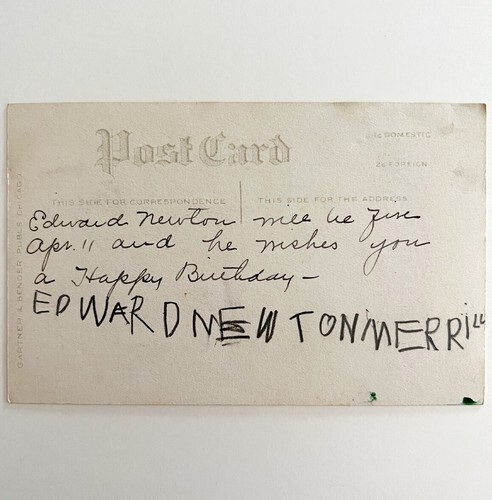 Post Card
1c DOMESTIC
2c FOREIGN
THIS SIDE FOR CORRESPONDENCE
THIS SIDE FOR THE ADDRESS
Edward Newton will be five
Apr. 11 and he wishes you
a Happy Birthday —
EDWARD NEWTON MERRiLL
GARTNER & BENDER PUBLS. CHICAGO